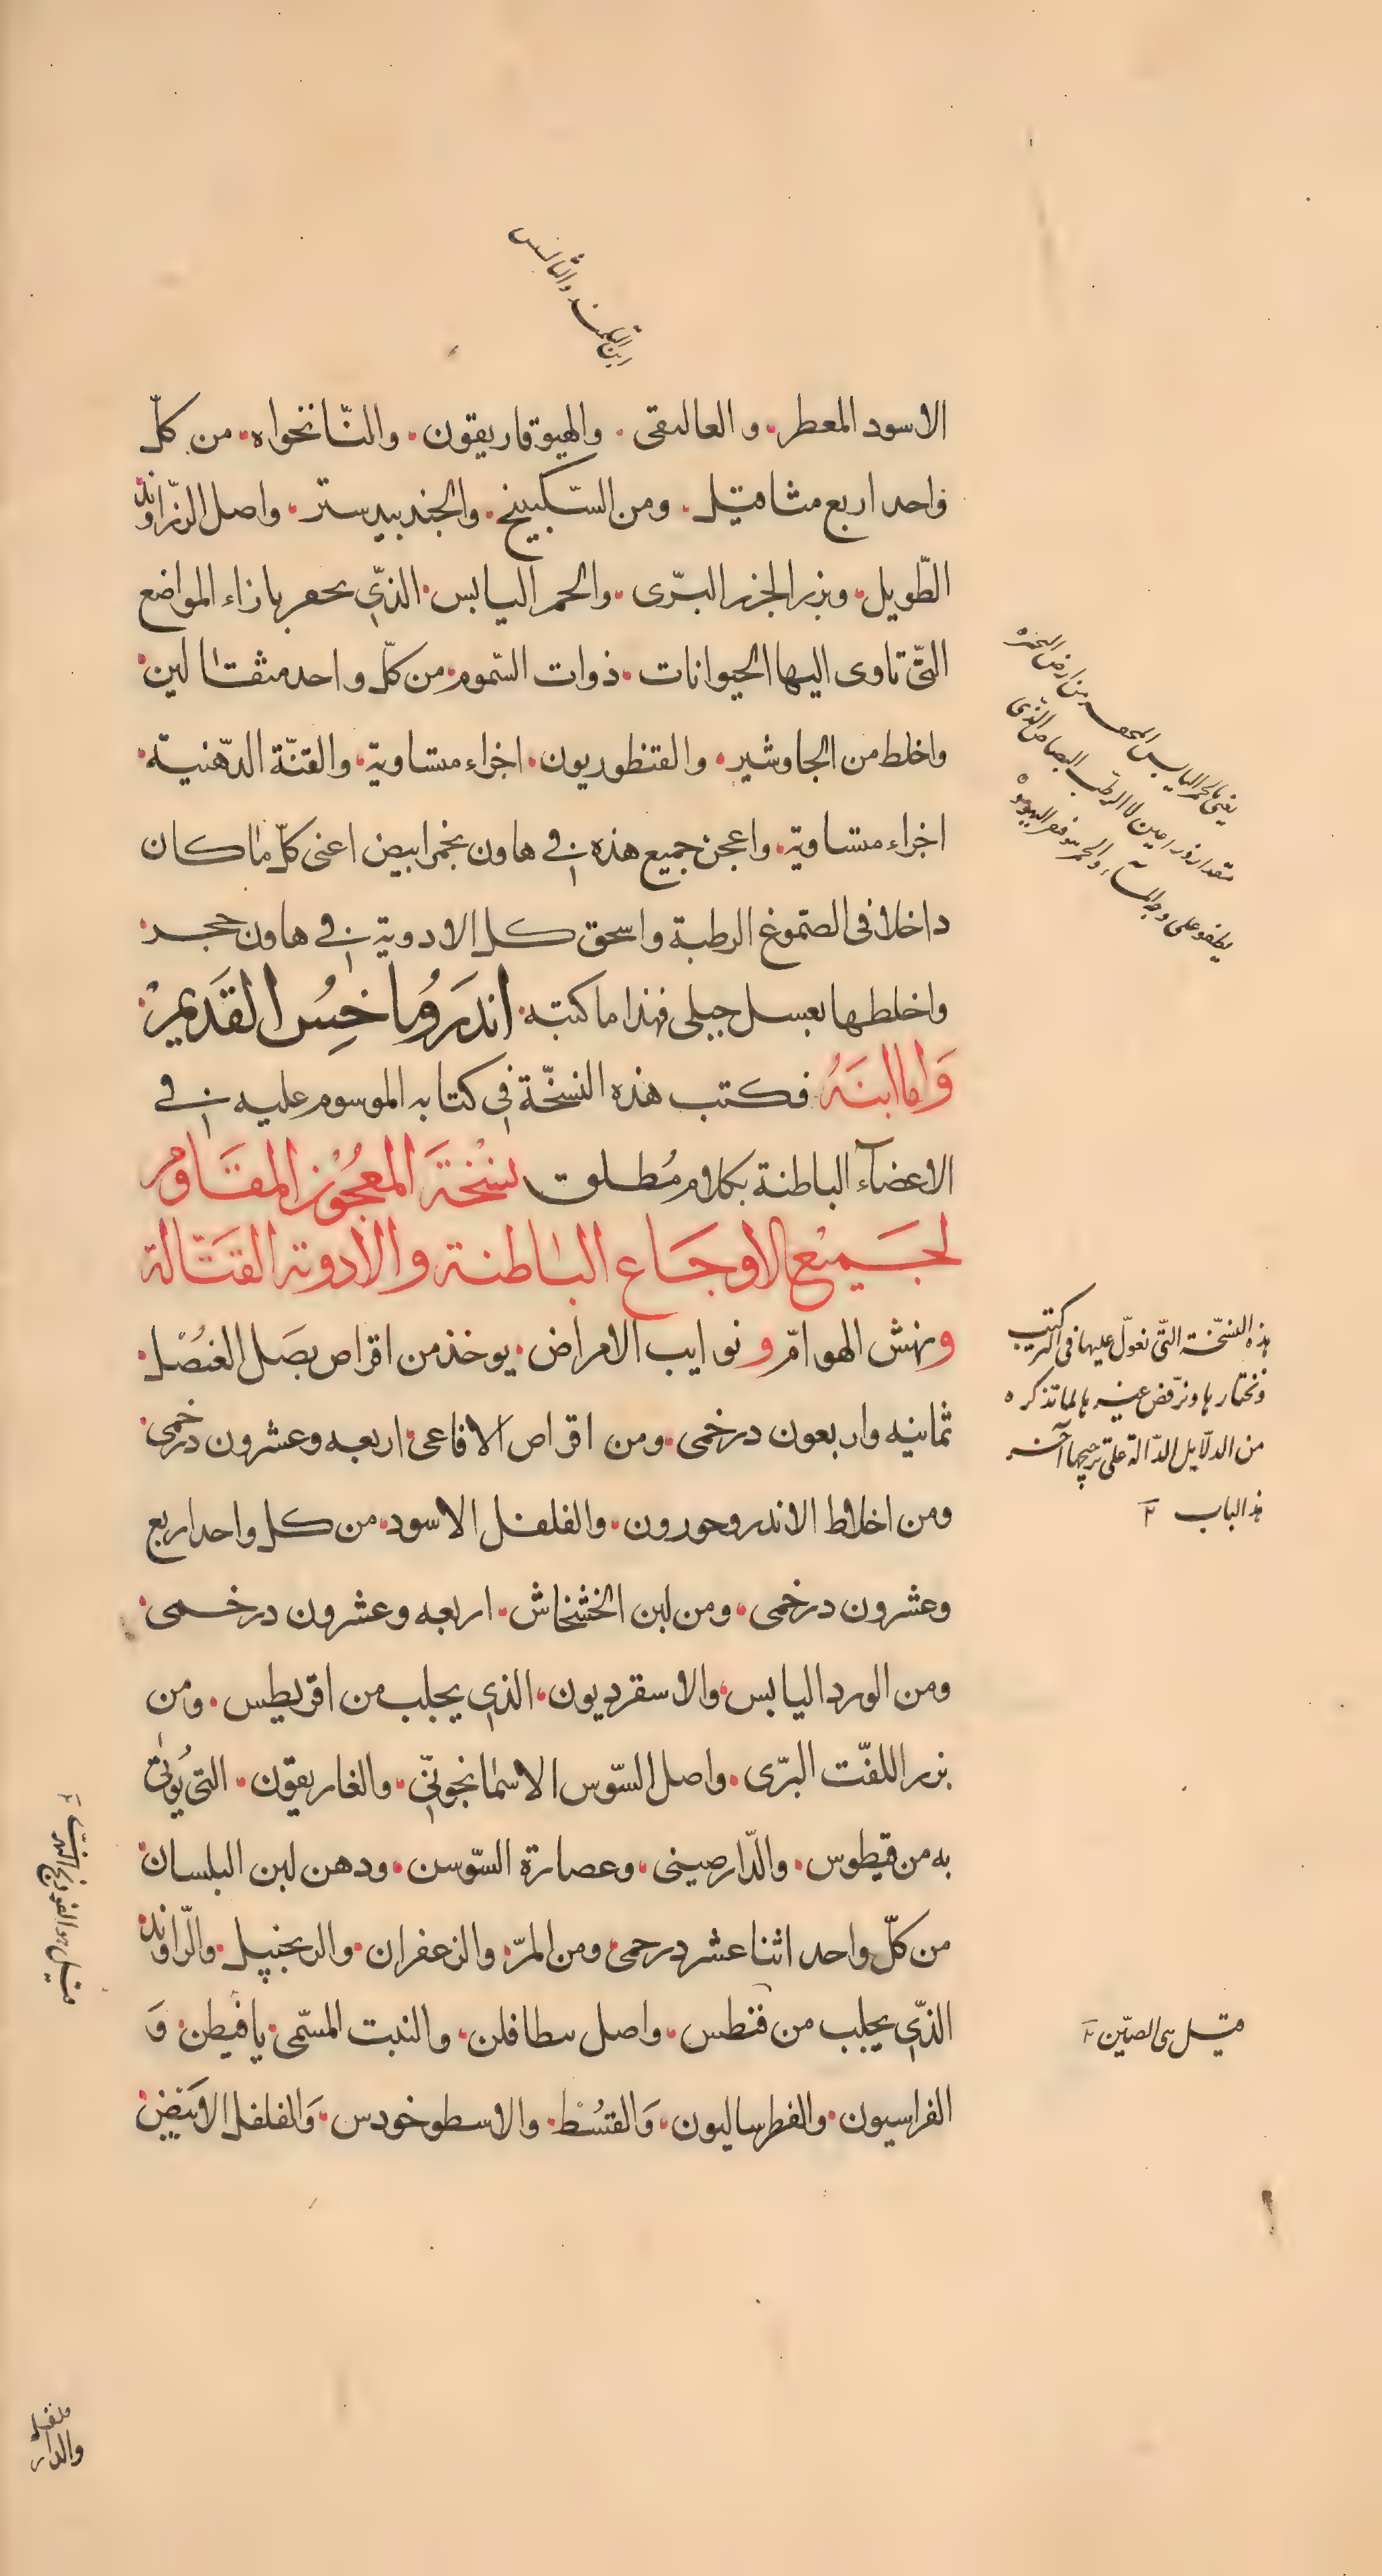 الاسود المعطر. و العالیقی. والهیوفاریقون. والنّانخواه. من کلّ
واحد اربع مثاقیل. ومن السّکبینج. والجندبیدستر. واصل الزّراوند
الطّویل. وبزر الجزر البرّی. والحمر الیابس. الذّی یحفر بازاء المواضع
التّی تاوی الیها الحیوانات. ذوات السّموم. من کلّ واحد مثقالین.
واخلط من الجاوشیر. والقنطوریون. اجزاء متساویة. والقنّة الدّهنیة.
اجزاء متساویة. واعجن جمیع هذه فی هاون بخمر ابیض اعنی کلّ ما کان
داخلا فی الصّموغ الرطبة واسحق کل الادویة فی هاون حجر.
واخلطها بعسل جبلی فهذا ما کتبه. اندَرُوماخِسُ القَدیمْ.
وَاما ابنَهُ فکتب هذه النسّخة فی کتابه الموسوم علیه فی
الاعضآء الباطنة بکلام مُطلق نسْخَةَ المَعجُوْنِ المقَاوم
لجَمیْع الاوجَاع البَاطنة والادویة القتَّالة
ونهش الهوامّ و نوایب الامراض. یوخذ من اقراص بصَل العُنصُل.
ثمانیه واربعون درخمی. ومن اقراص الافاعی. اربعه وعشرون درخمی.
ومن اخلاط الاندروخورون. والفلفل الاسود. من کل واحد اربع
وعشرون درخمی. ومن لبن الخشخاش. اربعه وعشرون درخمی.
ومن الورد الیابس. والاسقردیون. الذی یجلب من اقریطس. ومن
بزر اللفّت البرّی. واصل السّوس الاسمانجونیّ. والغاریقون. التی یُوتی
به من قیطوس. والدّارصینی. وعصارة السّوسن. ودهن لبن البلسان.
من کلّ واحد اثنا عشر درخمی. ومن المرّ. والزعفران. والزنجبیل. والرّاوند
الذّی یجلب من فنطس. واصل سطافلن. والنبت المسّمی. یافیطن. وَ
الفراسیون. والفطرسالیون. وَالقسُط. والاسطوخودس. وَالفلفل الابیَض.
هذه النسخّة التّی نعوّل علیها فی اکثر الکتب
ونختارها ونرفض غیرها لما تذکره
من الدلّایل الدّالة علی ترجیحها آخر
هذا الباب
قیل هی الصبّین
فلفل
والدار